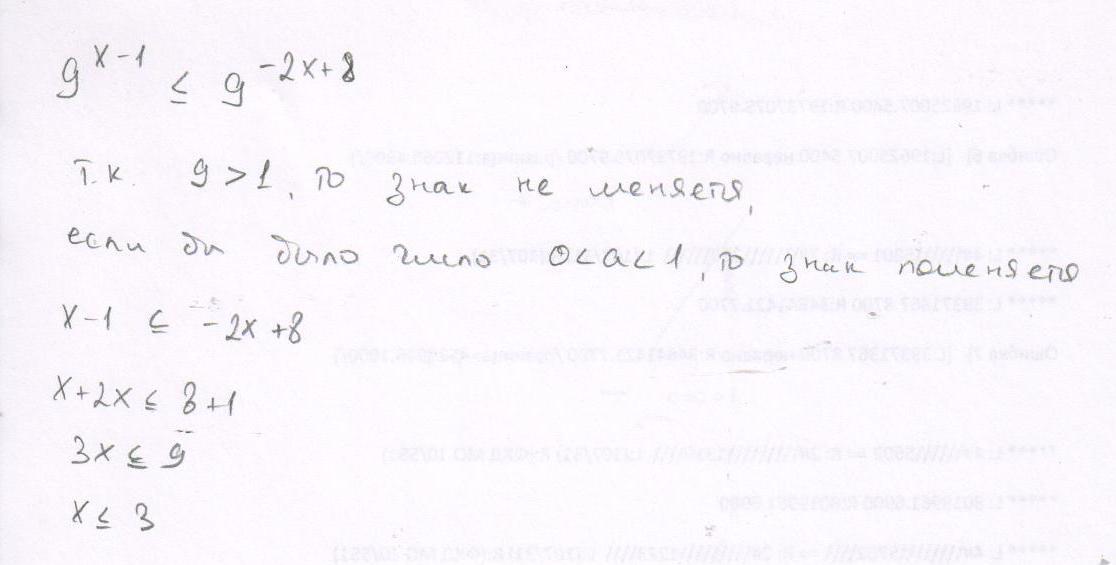 9^{x-1} ≤ 9^{-2x+8}
Т.к. 9 > 1, то знак не меняется,
если бы было число 0<a<1, то знак поменяется
x-1 ≤ -2x+8
x+2x ≤ 8+1
3x ≤ 9
x ≤ 3